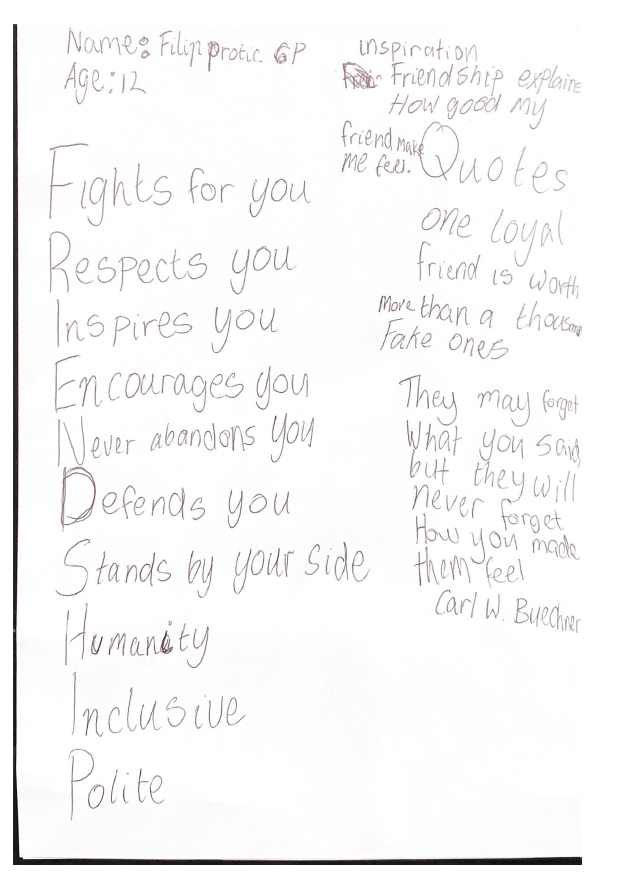 Name: Filip protic 6P
Age: 12
Fights for you
Respects you
Inspires you
Encourages you
Never abandons you
Defends you
Stands by your side
Humanity
Inclusive
Polite
inspiration
Friendship explains
How good my
friend make
me feel.
Quotes
one loyal
friend is worth
More than a thousand
Fake ones
They may forget
What you said,
but they will
never forget
How you made
them feel
Carl W. Buechner